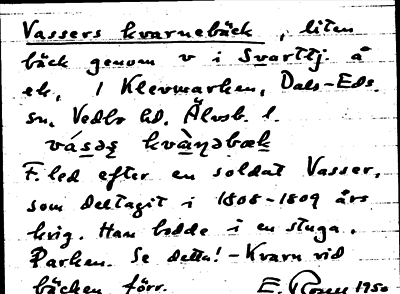 Vassers kvarnebäck, liten
bäck genom v i Svarttj. å
ek, i Klevmarken, Dals-Eds
sn, Vedbo hd, Älvsb. l.
vásəʂ kvàɳəbæk
F. led efter en soldat Vasser,
som deltagit i 1808-1809 års
krig. Han bodde i en stuga.
Parken. Se detta! - Kvarn vid
bäcken förr. E. 1950